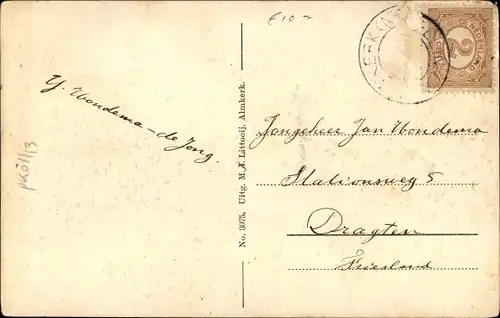 £10=
Y. Wondema - de Jong.
PKO1/13
No. 3075. Uitg. M. A. Littooij, Almkerk.
2
Jongeheer Jan Wondema
Stationsweg 5
Dragten
Friesland